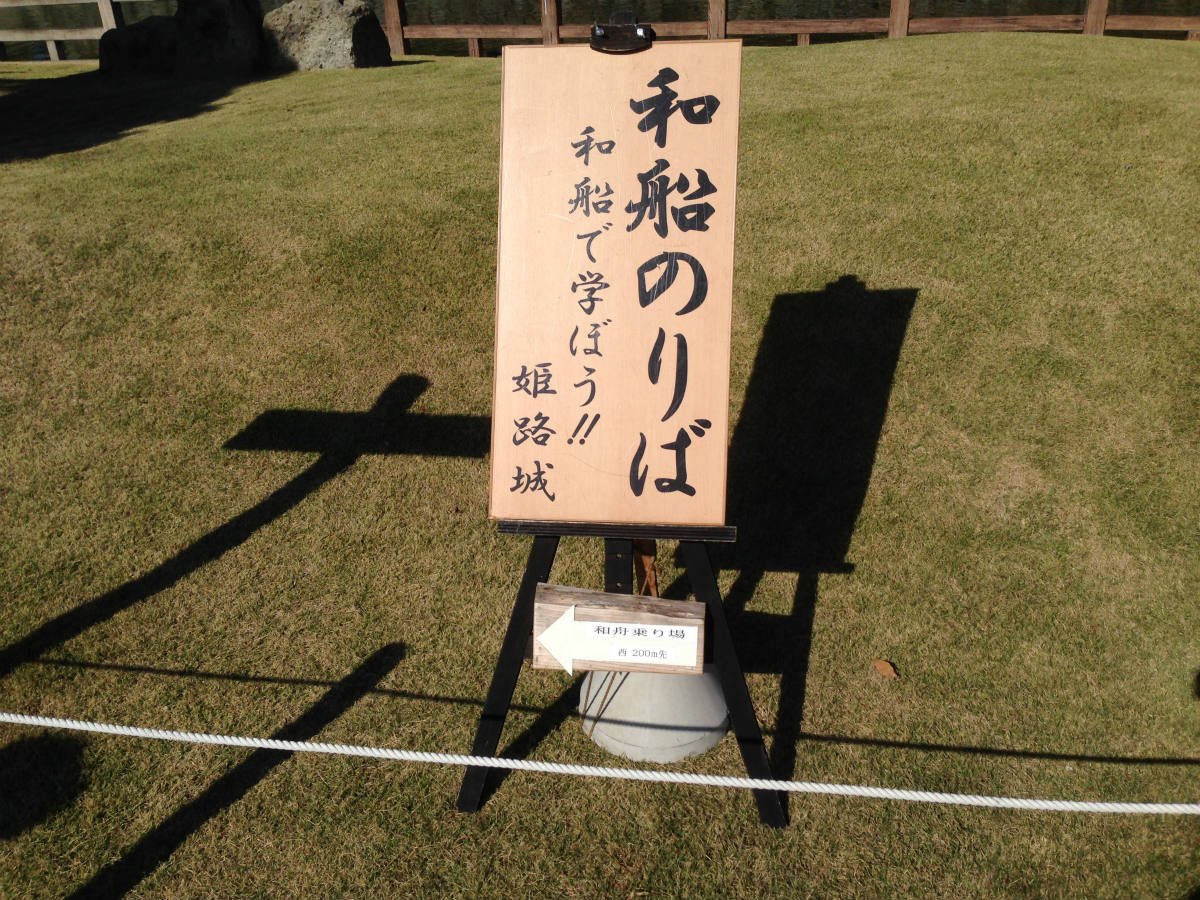 和船のりば
和船で学ぼう!!
姫路城
和舟乗り場
西 200m先